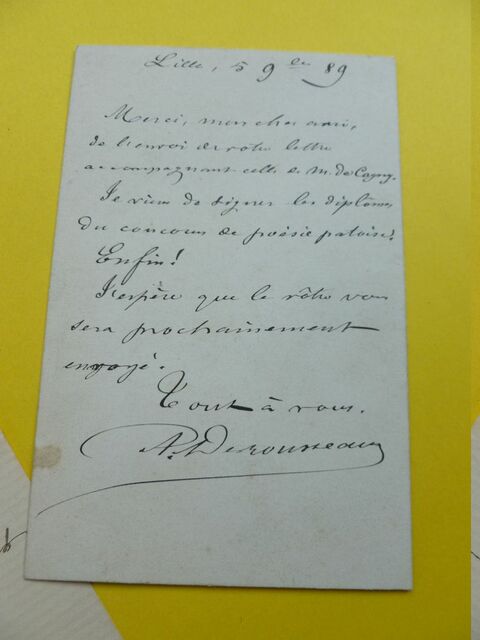 Lille, 5 9bre 89
Merci, mon cher ami,
de l'envoi de votre lettre
accompagnant celle de M. de Cagny.
Je viens de signer les diplômes
du concours de poésie patoise!
Enfin!
J'espère que le vôtre vous
sera prochainement
envoyé.
Tout à vous.
A. Desrousseaux